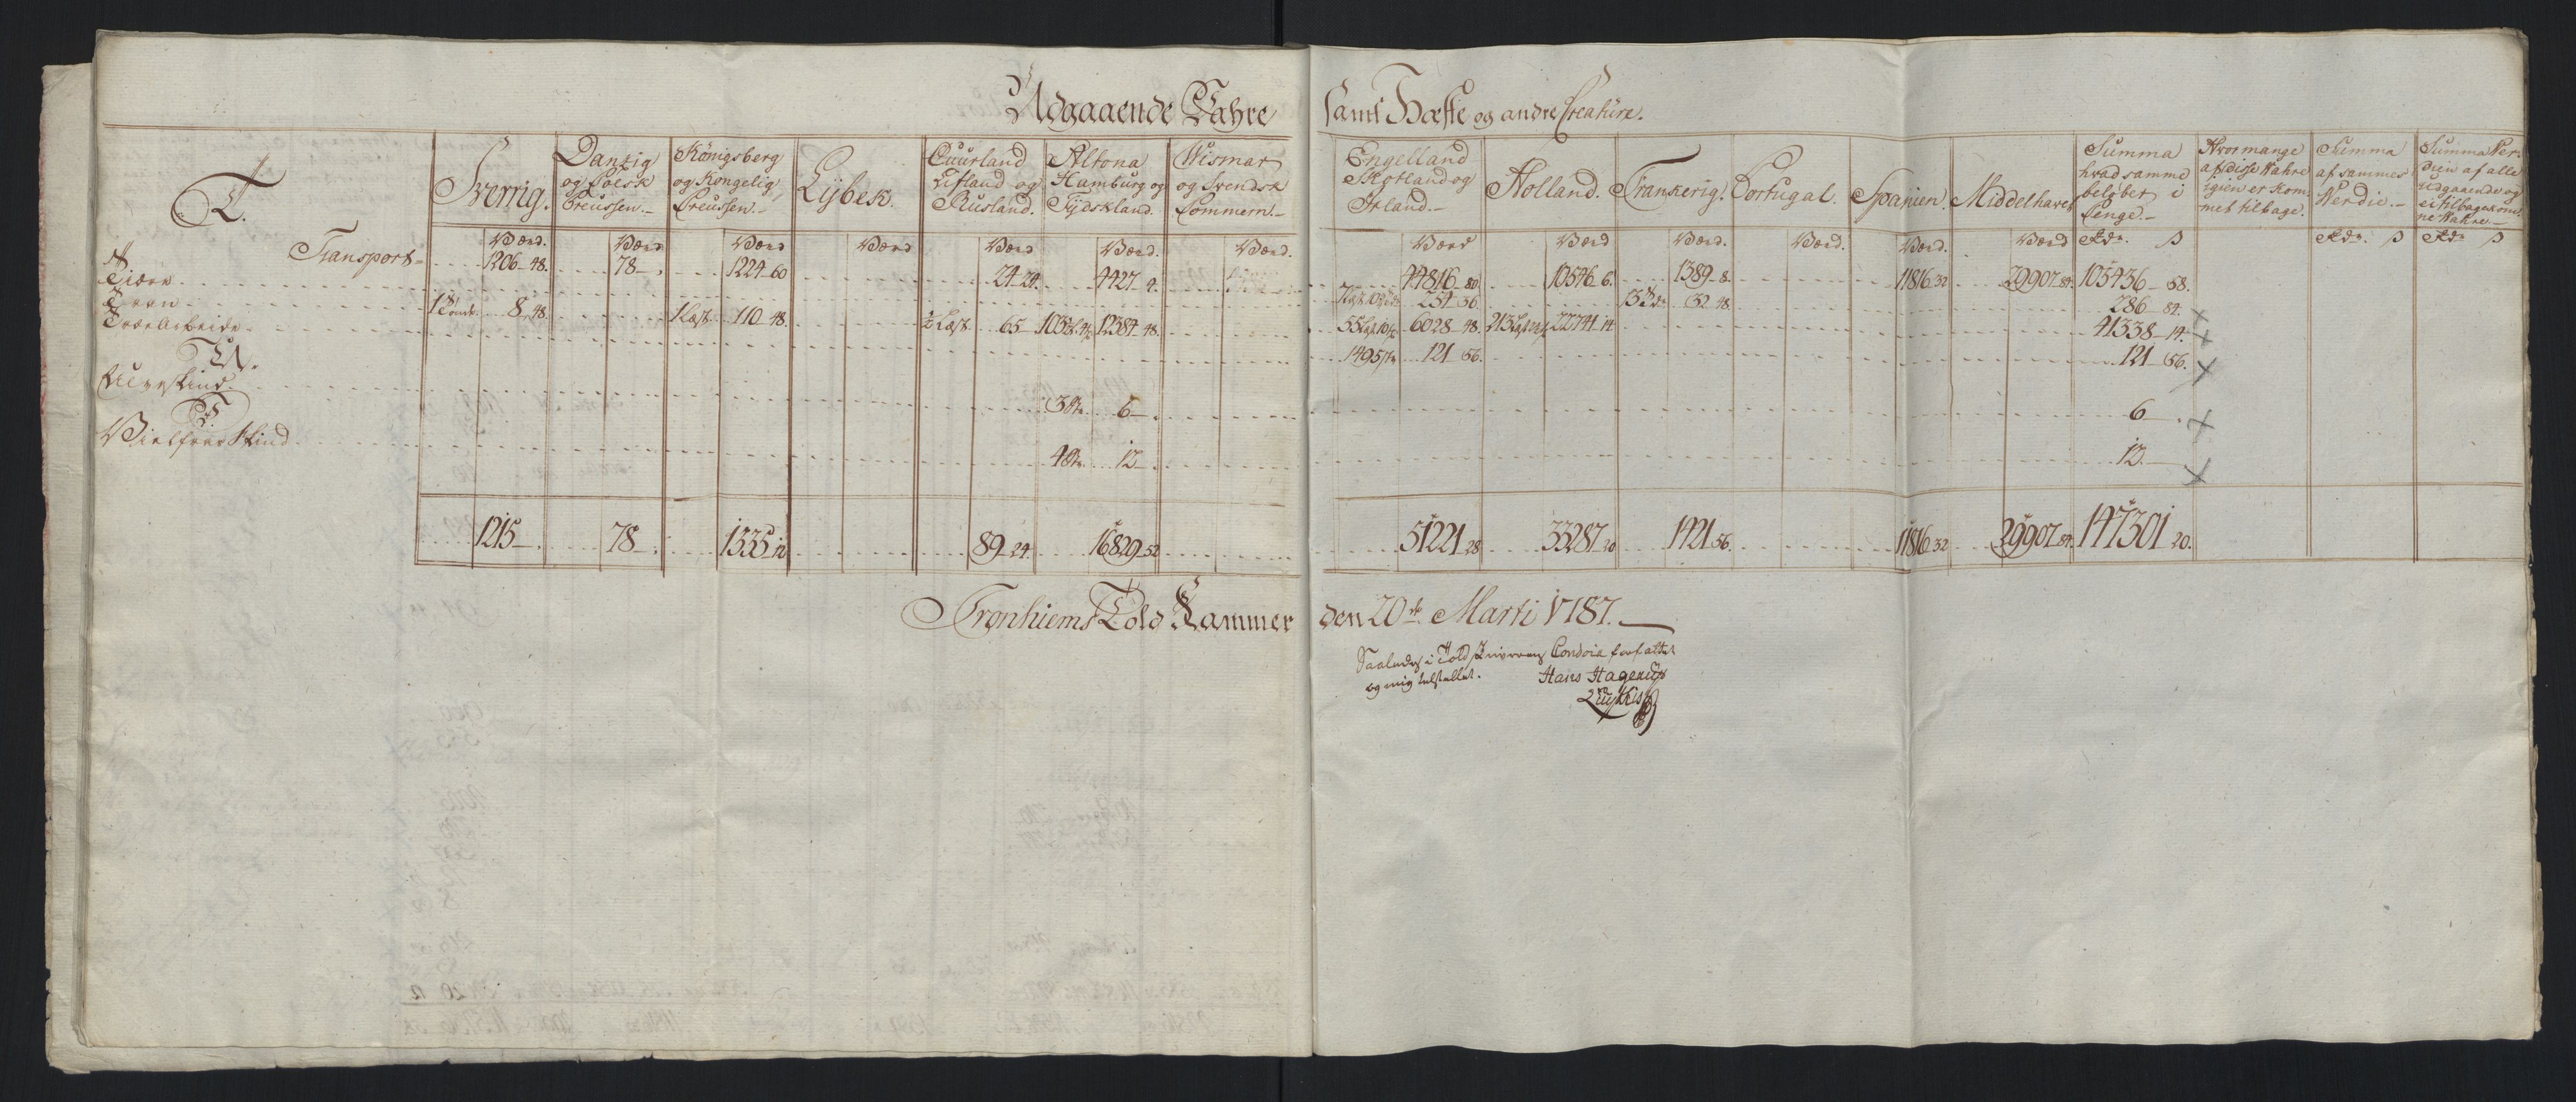 Udgaaende Vahre samt Hæste og andre Creature.
T.
Sverrig.
Danzig og Polsk Preussen.-
Königsberg og Kongelig Preussen.-
Lÿbek.
Cuurland Lifland og Rusland.
Altona Hamburg og Tÿdskland.
Wismar og Svendsk Pommern.-
Engelland Skotland og Irland.-
Holland.
Frankerig.
Portugal.
Spanien.
Middelhavet
Summa hvad samme beløber i Penge.-
Hvormange af disse Vahre igien er kommet tilbage.
Summa af sammes Verdie.-
Summa Verdien af alle udgaaende og ei tilbagekomne Vahre.
Værd. Værd Værd Værd Værd Værd. Værd. Værd Værd Værd. Værd. Værd. Værd Rdr. ß Rdr. ß Rdr ß
Transport 1206-48. 78-. 1224-60 24-24. 4427-4. 44816-80 10546-6. 1389-8. 11816 32 29907-84 105436-58.
Tiære 1 Tønde 8-48. 254-36 32-48. 286-84.
Tran 1 Læst 110-48. ½ Læst 65 12384-48. 6028-48. 22741-14 41338-14.
Træe Arbeide 1495 121-56. 121-56.
U.
Ulveskind 3 6-. 6-.
V.
Vielfras Skind 4 12-. 12.-
1215-. 78-. 1335-12 89-24 16829-52 51221-28 33287-20 1421-56. 11816-32 29907-84 147301-20.
Tronhiems Told Kammer den 20de Marti 1787.
Saaledes i Told forfattet
og mig tilstillet. Hans Hagerup